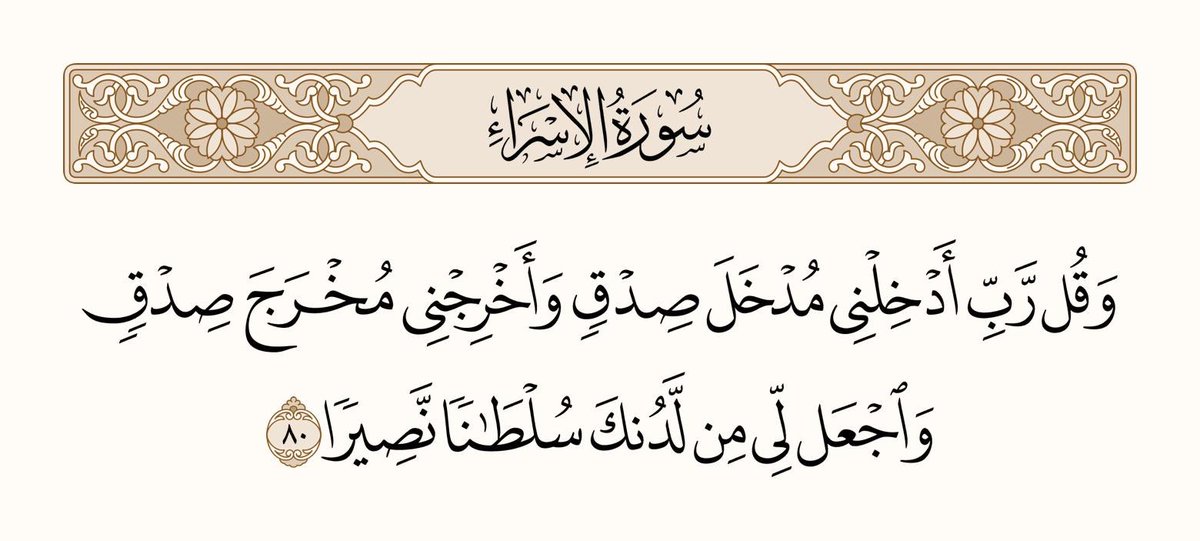 سُورَةُ الإِسْرَاءِ
وَقُل رَّبِّ أَدْخِلْنِى مُدْخَلَ صِدْقٍ وَأَخْرِجْنِى مُخْرَجَ صِدْقٍ
وَٱجْعَل لِّى مِن لَّدُنكَ سُلْطَـٰنًا نَّصِيرًا ٨٠